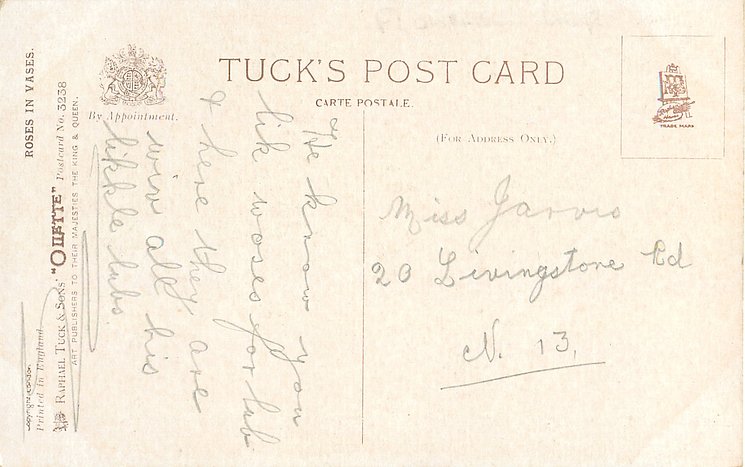 TUCK'S POST CARD
CARTE POSTALE.
(FOR ADDRESS ONLY.)
By Appointment.
TRADE MARK
ROSES IN VASES.
Printed in England
RAPHAEL TUCK & SONS' "OILETTE" Postcard No. 3238
ART PUBLISHERS TO THEIR MAJESTIES THE KING & QUEEN.
He know you
lik woses for lub
& here they are
wiv all his
likkle lubs
Miss Jarvis
20 Livingstone Rd
N. 13.